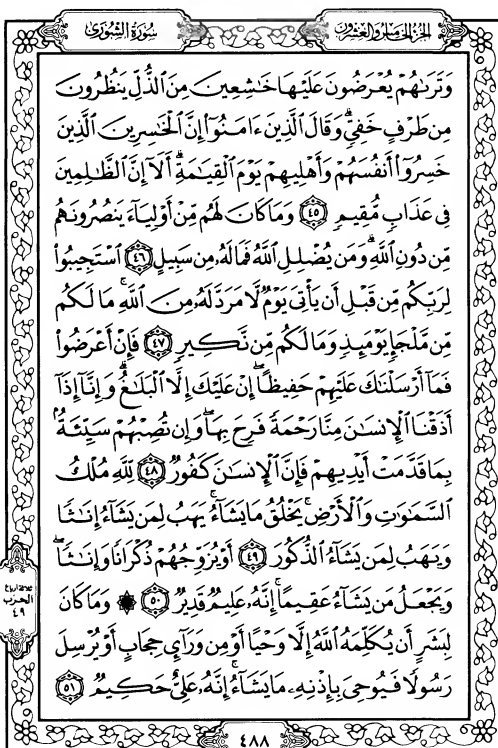 سُورَةُ الشُّورَىٰ
الجُزْءُ الخَامِسُ وَالعِشْرُونَ
وَتَرَىٰهُمْ يُعْرَضُونَ عَلَيْهَا خَٰشِعِينَ مِنَ ٱلذُّلِّ يَنظُرُونَ
مِن طَرْفٍ خَفِىٍّ ۗ وَقَالَ ٱلَّذِينَ ءَامَنُوٓا۟ إِنَّ ٱلْخَٰسِرِينَ ٱلَّذِينَ
خَسِرُوٓا۟ أَنفُسَهُمْ وَأَهْلِيهِمْ يَوْمَ ٱلْقِيَٰمَةِ ۗ أَلَآ إِنَّ ٱلظَّٰلِمِينَ
فِى عَذَابٍ مُّقِيمٍ ٤٥ وَمَا كَانَ لَهُم مِّنْ أَوْلِيَآءَ يَنصُرُونَهُم
مِّن دُونِ ٱللَّهِ ۗ وَمَن يُضْلِلِ ٱللَّهُ فَمَا لَهُۥ مِن سَبِيلٍ ٤٦ ٱسْتَجِيبُوا۟
لِرَبِّكُم مِّن قَبْلِ أَن يَأْتِىَ يَوْمٌ لَّا مَرَدَّ لَهُۥ مِنَ ٱللَّهِ ۚ مَا لَكُم
مِّن مَّلْجَإٍ يَوْمَئِذٍ وَمَا لَكُم مِّن نَّكِيرٍ ٤٧ فَإِنْ أَعْرَضُوا۟
فَمَآ أَرْسَلْنَٰكَ عَلَيْهِمْ حَفِيظًا ۖ إِنْ عَلَيْكَ إِلَّا ٱلْبَلَٰغُ ۗ وَإِنَّآ إِذَآ
أَذَقْنَا ٱلْإِنسَٰنَ مِنَّا رَحْمَةً فَرِحَ بِهَا ۖ وَإِن تُصِبْهُمْ سَيِّئَةٌۢ
بِمَا قَدَّمَتْ أَيْدِيهِمْ فَإِنَّ ٱلْإِنسَٰنَ كَفُورٌ ٤٨ لِّلَّهِ مُلْكُ
ٱلسَّمَٰوَٰتِ وَٱلْأَرْضِ ۚ يَخْلُقُ مَا يَشَآءُ ۚ يَهَبُ لِمَن يَشَآءُ إِنَٰثًا
وَيَهَبُ لِمَن يَشَآءُ ٱلذُّكُورَ ٤٩ أَوْ يُزَوِّجُهُمْ ذُكْرَانًا وَإِنَٰثًا ۖ
وَيَجْعَلُ مَن يَشَآءُ عَقِيمًا ۚ إِنَّهُۥ عَلِيمٌ قَدِيرٌ ٥٠ ۞ وَمَا كَانَ
لِبَشَرٍ أَن يُكَلِّمَهُ ٱللَّهُ إِلَّا وَحْيًا أَوْ مِن وَرَآئِ حِجَابٍ أَوْ يُرْسِلَ
رَسُولًا فَيُوحِىَ بِإِذْنِهِۦ مَا يَشَآءُ ۚ إِنَّهُۥ عَلِىٌّ حَكِيمٌ ٥١
الحزب
٤٩
٤٨٨